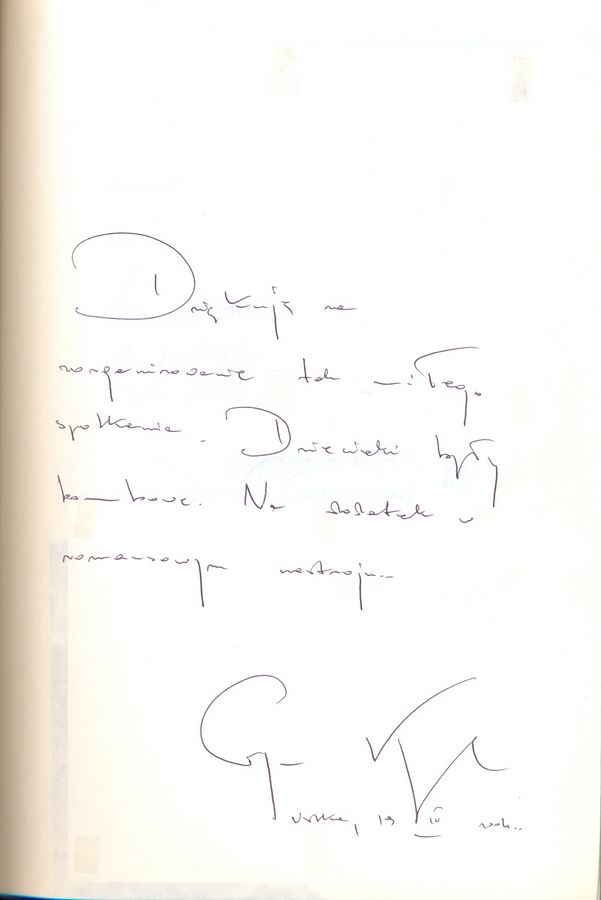 Dziękuję za
zorganizowanie tak miłego
spotkania. Dziewięki były
bombowe. Na dodatek w
romansowym nastroju...
Ustka, 19 IV